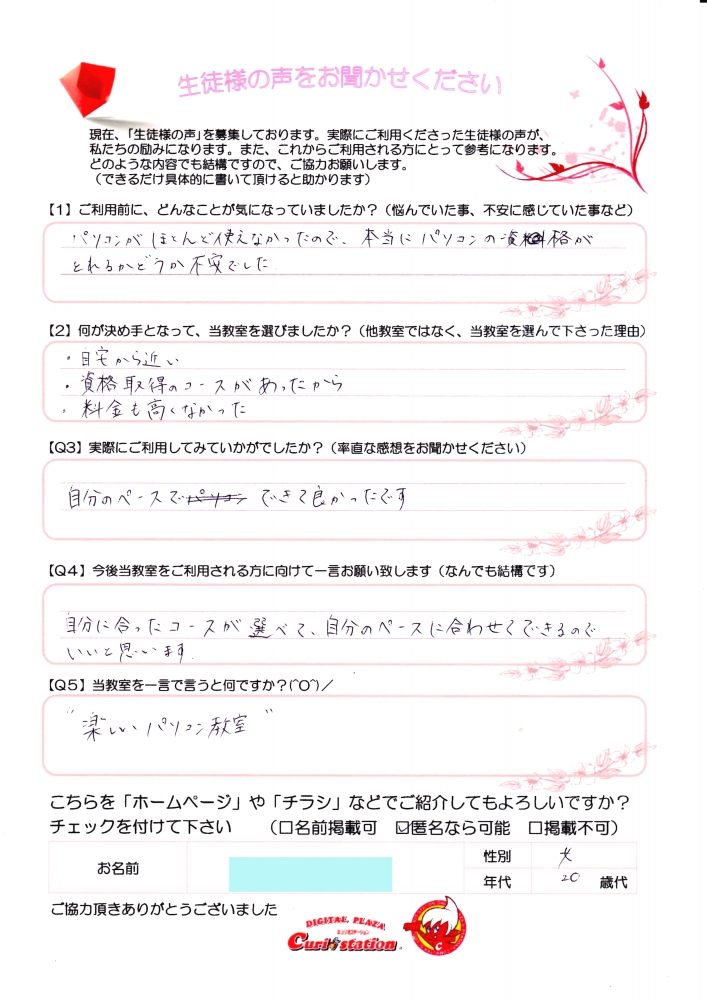 生徒様の声をお聞かせください
現在、「生徒様の声」を募集しております。実際にご利用くださった生徒様の声が、
私たちの励みになります。また、これからご利用される方にとって参考になります。
どのような内容でも結構ですので、ご協力お願いします。
（できるだけ具体的に書いて頂けると助かります）
【1】ご利用前に、どんなことが気になっていましたか？（悩んでいた事、不安に感じていた事など）
パソコンがほとんど使えなかったので、本当にパソコンの資格が
とれるかどうか不安でした
【2】何が決め手となって、当教室を選びましたか？（他教室ではなく、当教室を選んで下さった理由）
・自宅から近い
・資格取得のコースがあったから
・料金も高くなかった
【Q3】実際にご利用してみていかがでしたか？（率直な感想をお聞かせください）
自分のペースでパソコンできて良かったです
【Q4】今後当教室をご利用される方に向けて一言お願い致します（なんでも結構です）
自分に合ったコースが選べて、自分のペースに合わせてできるので
いいと思います.
【Q5】当教室を一言で言うと何ですか？(^O^)／
"楽しいパソコン教室"
こちらを「ホームページ」や「チラシ」などでご紹介してもよろしいですか？
チェックを付けて下さい　（□名前掲載可　☑匿名なら可能　□掲載不可）
お名前
性別 女
年代 20 歳代
ご協力頂きありがとうございました
DIGITAL PLAZA
Curio station